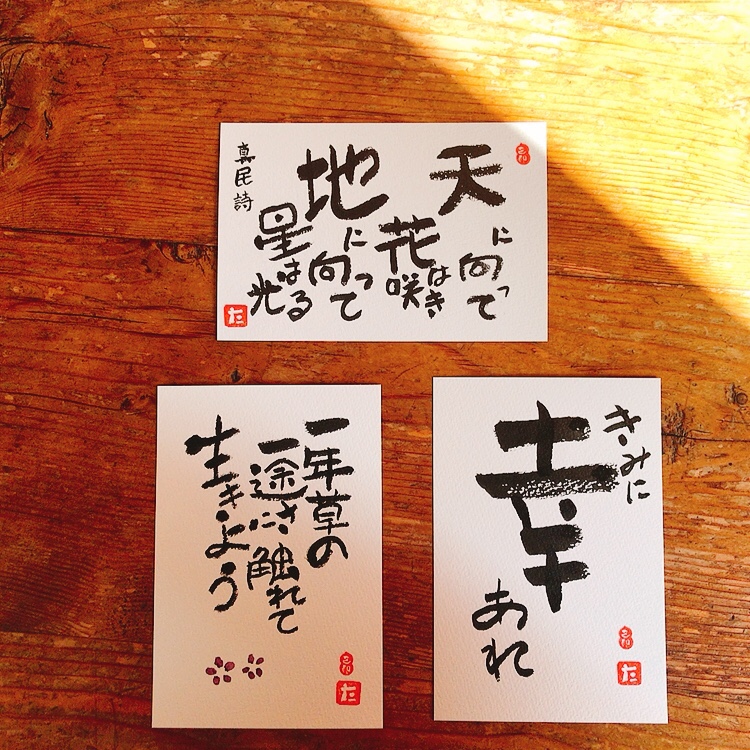 天に向って
花は咲き
地に向って
星は光る
真民詩
た
一年草の
一途さに触れて
生きよう
た
きみに
幸あれ
た